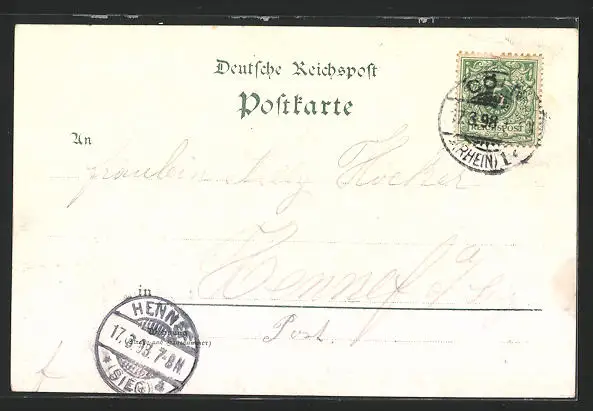 Deutsche Reichspost
Postkarte
REICHSPOST
CÖLN
17.3.98
(RHEIN) 1
An
Fräulein Hocker
Hennef a/Sieg
in
Post.
HENNEF
17.3.98. 7-8N.
(SIEG)
Wohnung
(Straße und Hausnummer)